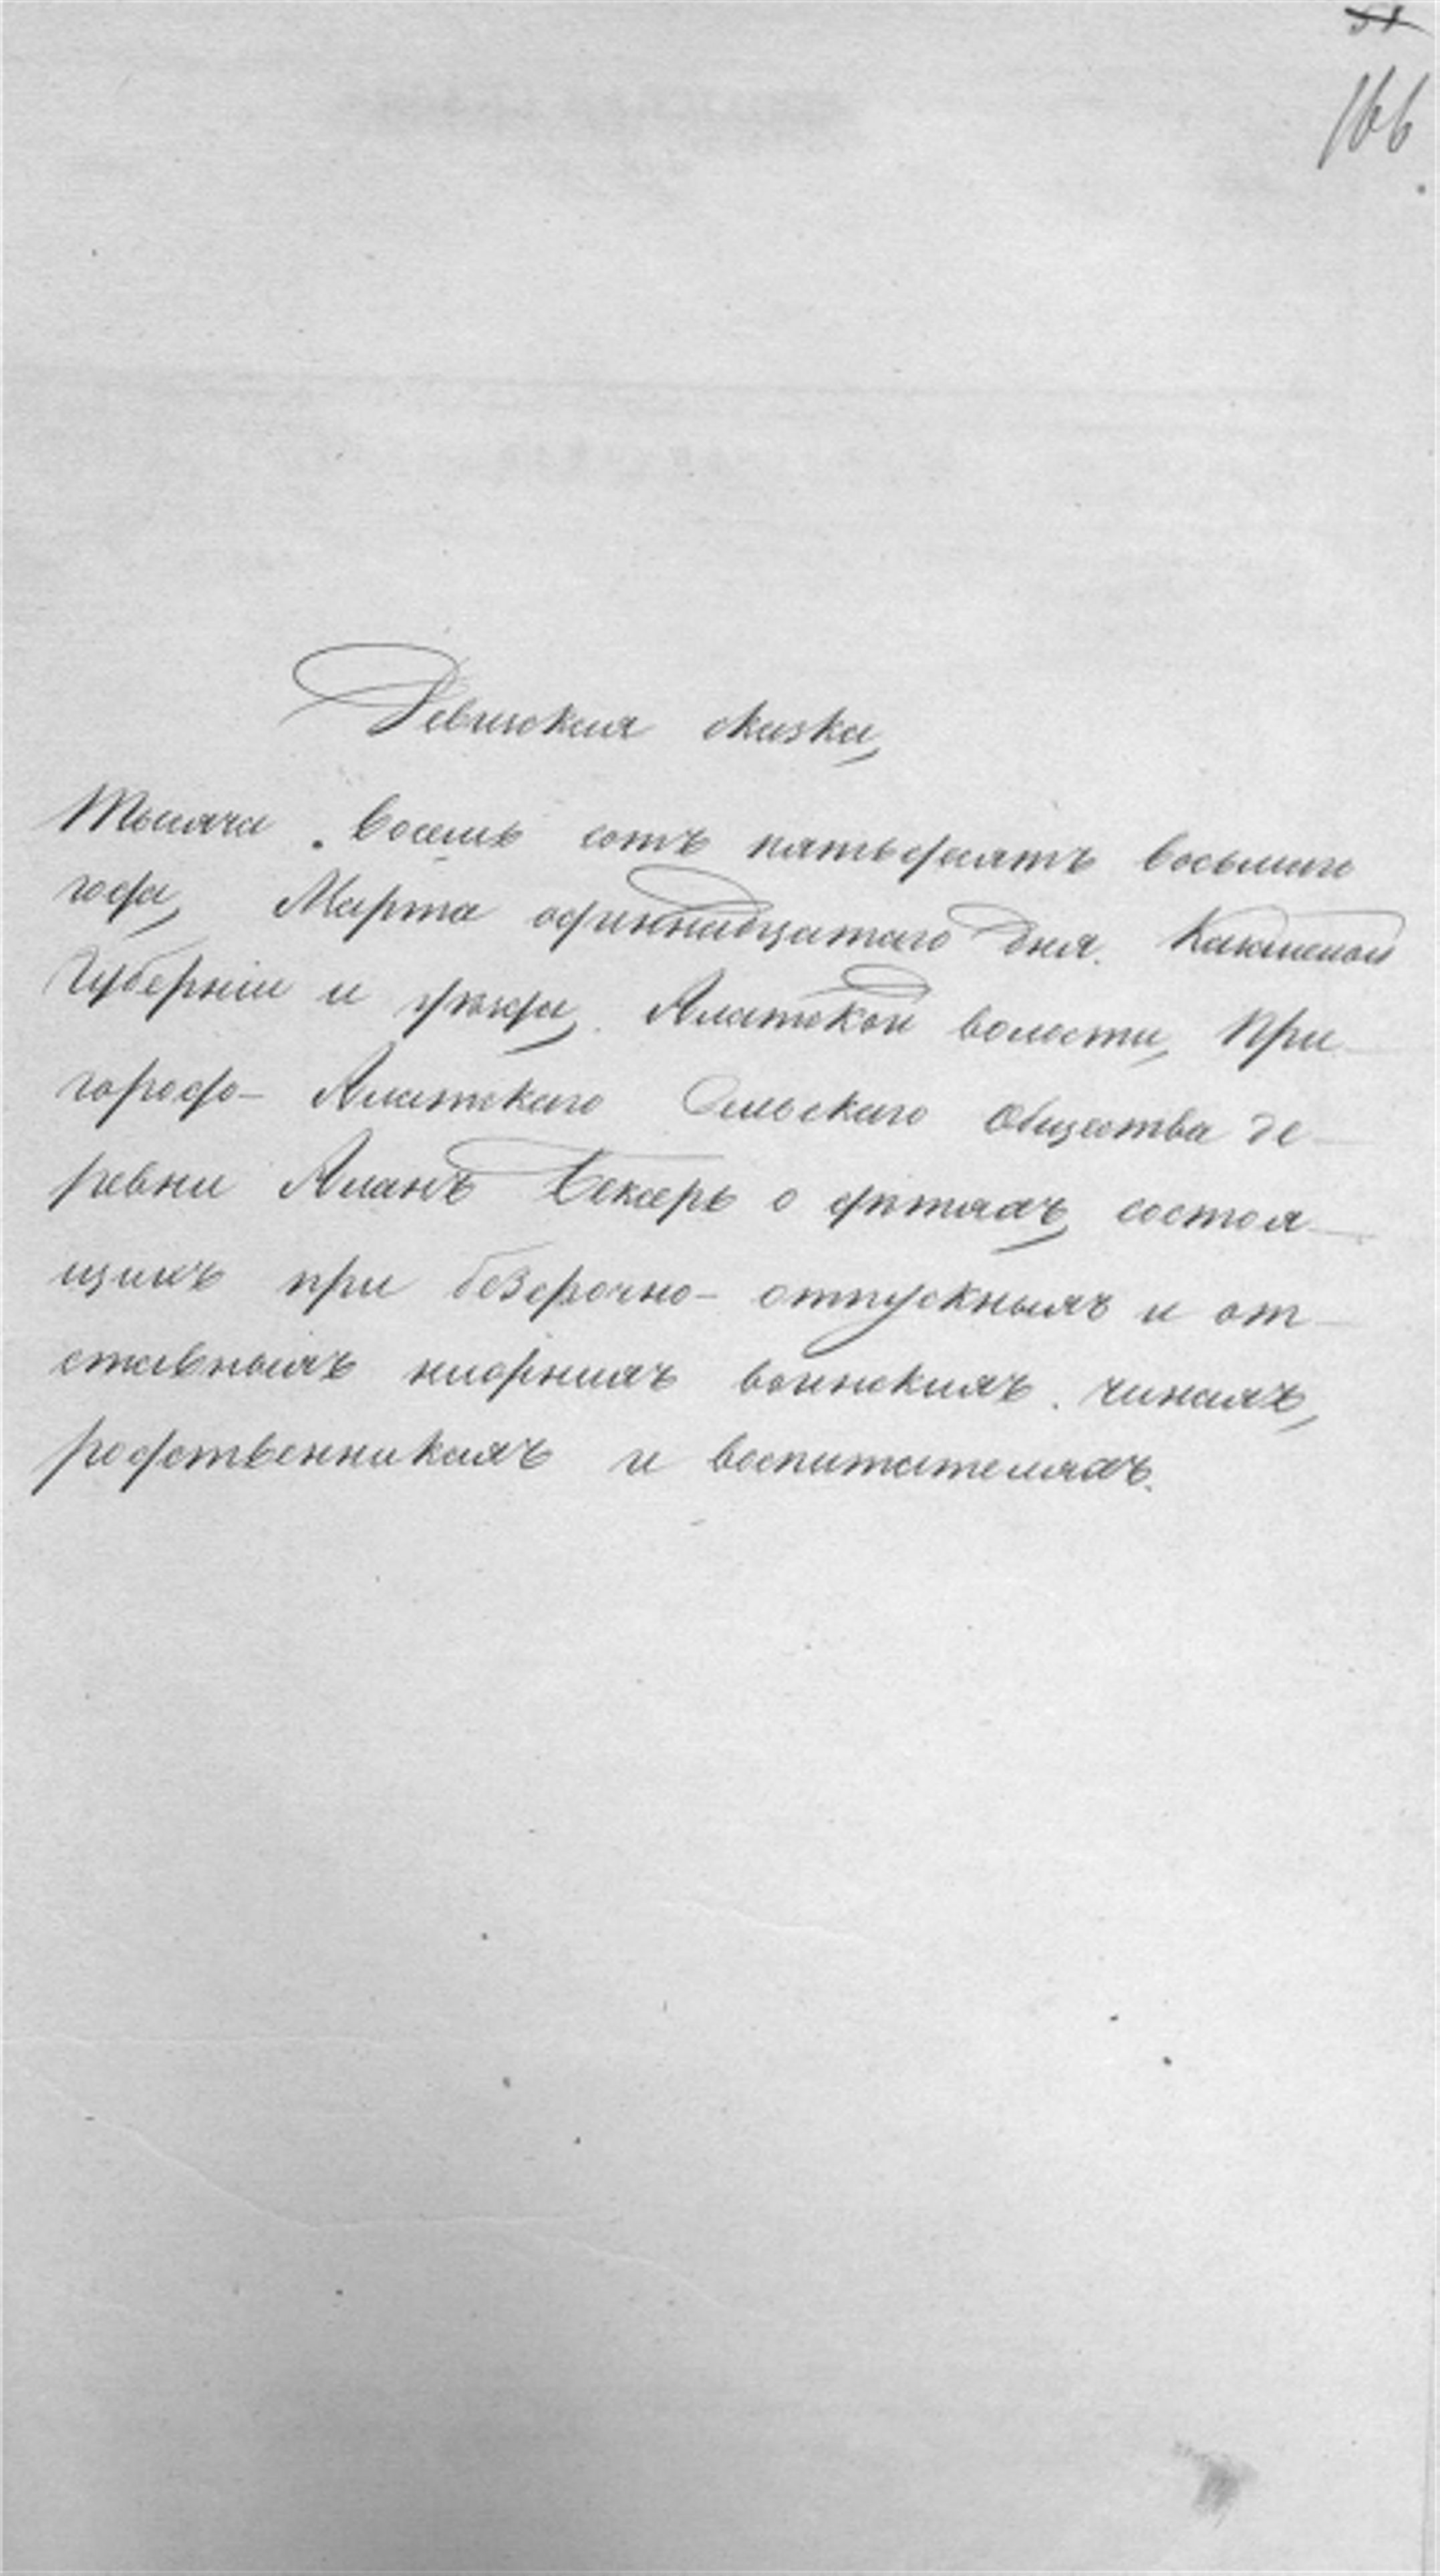 51
166
Ревизская сказка,
Тысяча восемь сотъ пятьдесятъ восьмаго
года, Марта одиннадцатаго дня. Казанской
Губерніи и уѣзда, Алатской волости, При
городо- Алатскаго Сельскаго общества де
ревни Аланъ Бексерь о дѣтяхъ, состоя
щихъ при безсрочно- отпускныхъ и от
ставныхъ нижнихъ воинскихъ чинахъ,
родственникахъ и воспитателяхъ.